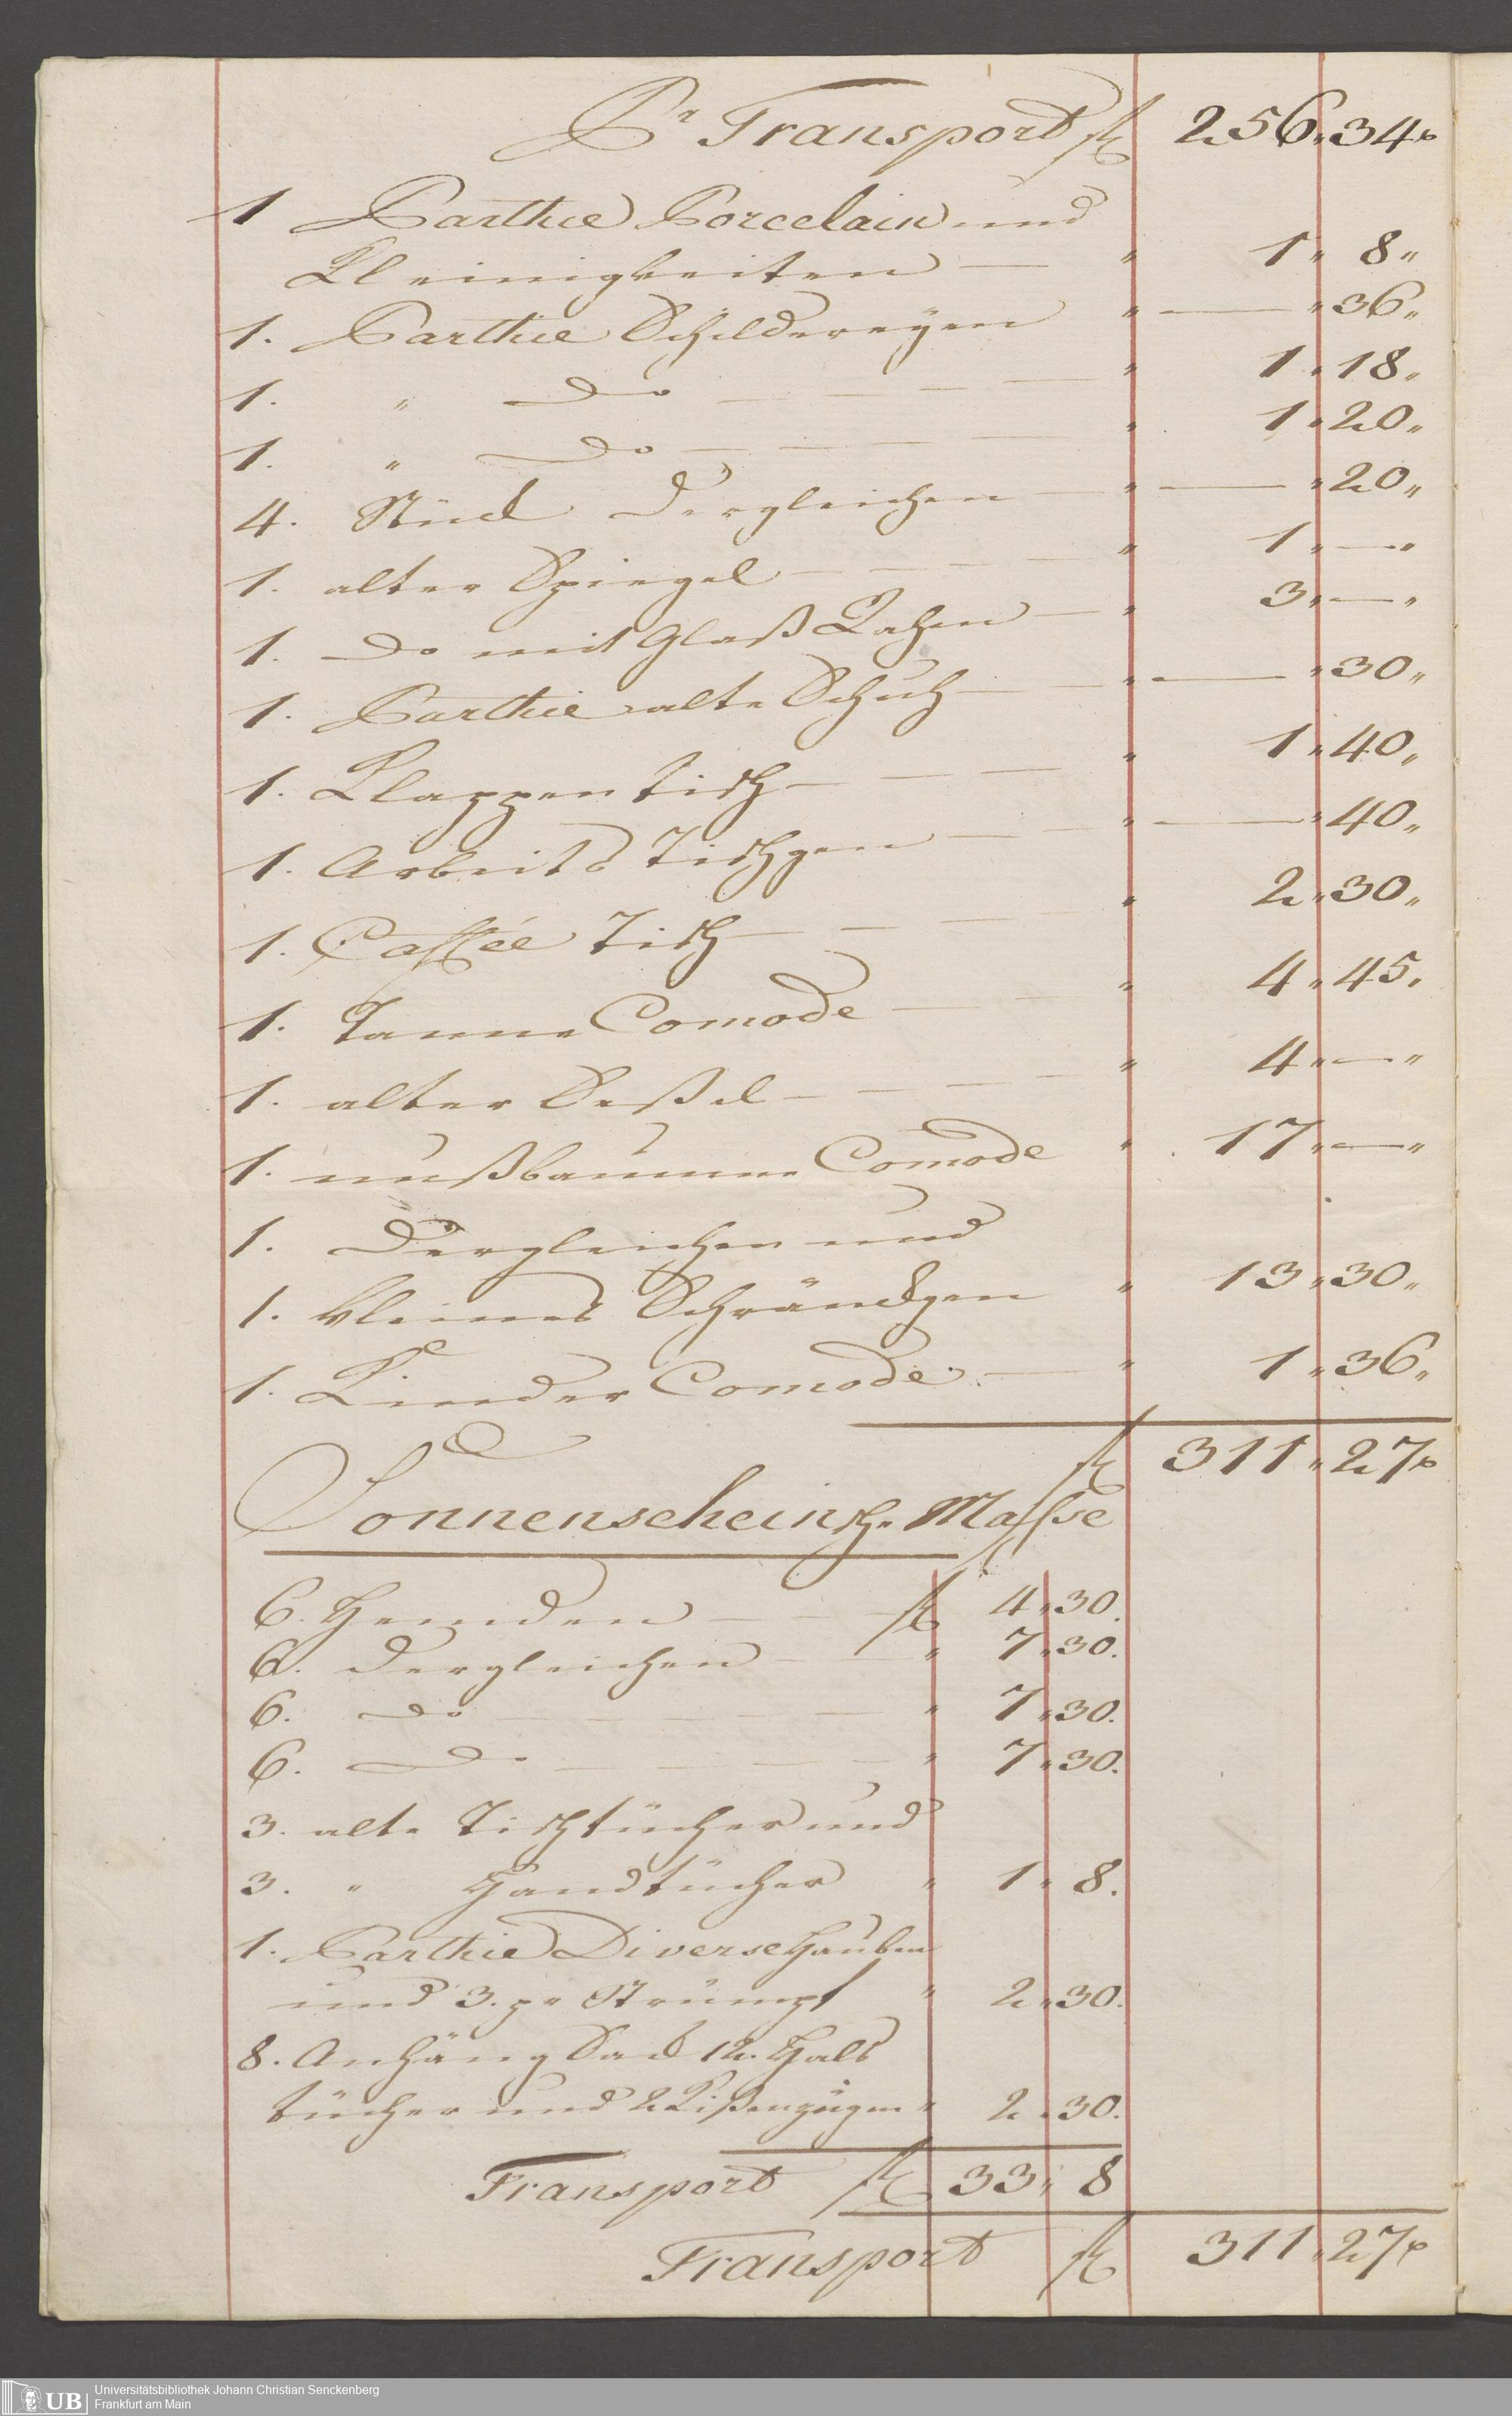 Pr Transport fl 256„ 34x
1 Parthie Porcelain und
Kleinigkeiten — „ 1„ 8„
1. Parthie Schildereyen „ — „ 36„
1. „ Do — — — „ 1„ 18„
1. „ Do — — — „ 1„ 20„
4. Stück Dergleichen — „ — „ 20„
1. alter Spiegel — — — „ 1„ — „
1. Do mit Glaß Rahen — „ 3„ — „
1. Parthie alte Schuh — „ — „ 30„
1. Klappen tisch — — — „ 1„ 40„
1. Arbeits Tischgen — — „ — „ 40„
1. Caffée Tisch — — — „ 2„ 30„
1. Tanne Comode — — „ 4„ 45„
1. alter Seßel — — — „ 4„ — „
1. nußbaumne Comode „ 17„ — „
1. Dergleichen und
1. kleines Schränckgen „ 13„ 30„
1. Kinder Comode — „ 1„ 36„
fl 311„ 27x
Sonnenscheinsche Masse
6. Hemden — — fl 4„ 30.
6. Dergleichen — — „ 7„ 30.
6. Do — — — — „ 7„ 30.
6. Do — — — — „ 7„ 30.
3. alte Tischtücher und
3. „ Handtücher „ 1„ 8.
1. Parthie Diverse Hauben
und 3. pr Strümpf „ 2„ 30.
8. Anhäng Sack 12. Hals
tücher und 2 Kißenzügen „ 2„ 30.
Transport fl 33„ 8
Transport fl 311„ 27x
UB Universitätsbibliothek Johann Christian Senckenberg
Frankfurt am Main